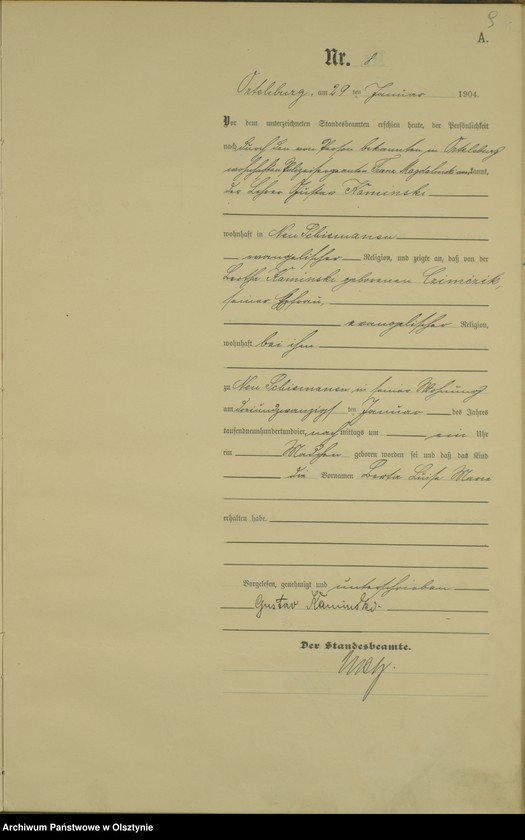 9
A.
Nr. 1
Ortelsburg, am 29ten Januar 1904.
Vor dem unterzeichneten Standesbeamten erschien heute, der Persönlichkeit
nach durch den von Person bekannten in Ortelsburg
wohnhaften Polizeisergeanten Franz kannt,
der Lehrer Gustav Kaminski
wohnhaft in Neu Schiemanen
evangelischer Religion, und zeigte an, daß von der
Kaminski geborenen
seiner Ehefrau,
evangelischer Religion,
wohnhaft bei ihm
zu Neu Schiemanen in seiner Wohnung
am dreiundzwanzigsten Januar des Jahres
tausendneunhundertundvier, nachmittags um ein Uhr
ein Mädchen geboren worden sei und daß das Kind
die Vornamen Berta Luise Marie
erhalten habe.
Vorgelesen, genehmigt und unterschrieben
Gustav Kaminski.
Der Standesbeamte.
Archiwum Państwowe w Olsztynie